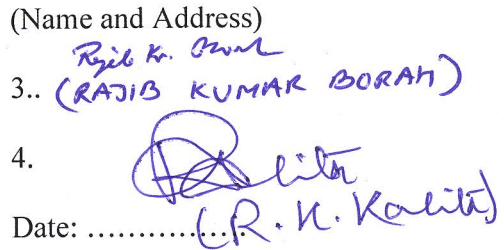 (Name and Address)
Rajib Kr. Borah
3.. (RAJIB KUMAR BORAH)
4.
Date: ................
(R. K. Kalita)